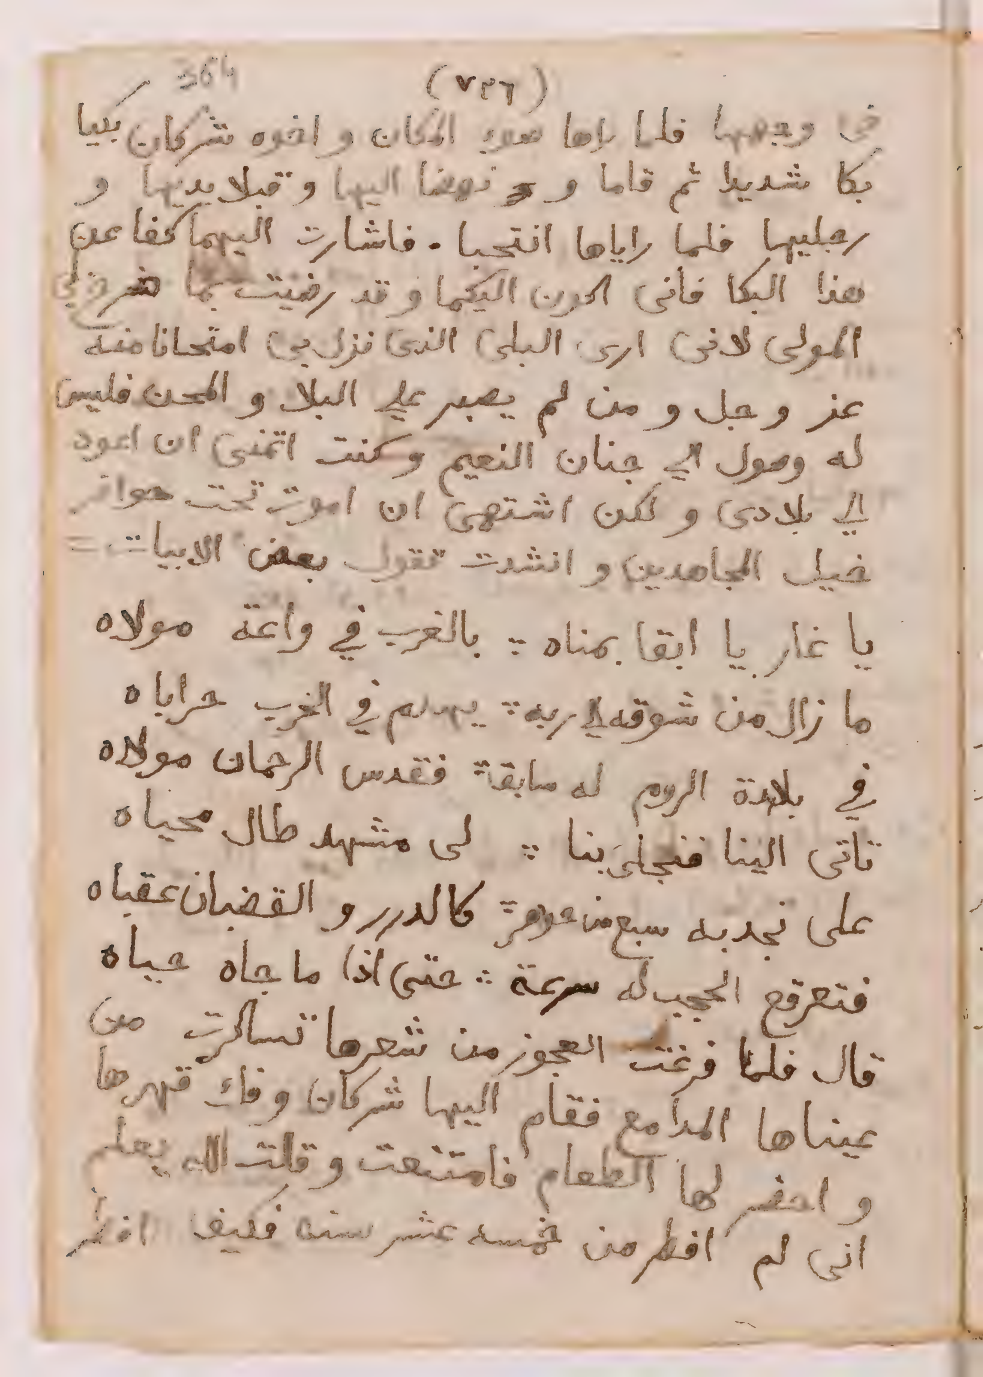 364
(٧٢٦)
في وجهها فلما راها ضوء المكان و اخوه شركان بكيا
بكا شديدا ثم قاما و نهضا اليها و قبلا يديها و
رجليها فلما راياها انتحبا . فاشارت اليهما كفا عن
هذا البكا فانى احون اليكما و قد رضيت بما
المولى لانى ارى البلى الذى نزل بي امتحانا منه
عز و جل و من لم يصبر علي البلا و المحن فليس
له وصول الي جنان النعيم و كنت اتمنى ان اعود
الي بلادى و لكن اشتهى ان اموت تحت حوافر
خيل المجاهدين و انشدت تقول بعض الابيات
يا غار يا ابقا بمناه ∴ بالغرب في واعة مولاه
ما زال من شوقه الي ربه ∴ يهلم في الغرب حراباه
في بلادة الروم له سابقة ∴ فقدس الرحمان مولاه
تاتى الينا فنجلى بنا ∴ لى مشهد طال محياه
على نجد به سبع من ∴ كالدرر و القضبان عقباه
فتعرقع الحجب له سرعة ∴ حتى اذا ما جاه حياه
قال فلما فرغت العجوز من شعرها تساكرت من
عيناها المدامع فقام اليها شركان و فك قهرها
و احضر لها الطعام فامتنعت و قالت الله يعلم
انى لم افطر من خمسه عشر سنه فكيف افطر